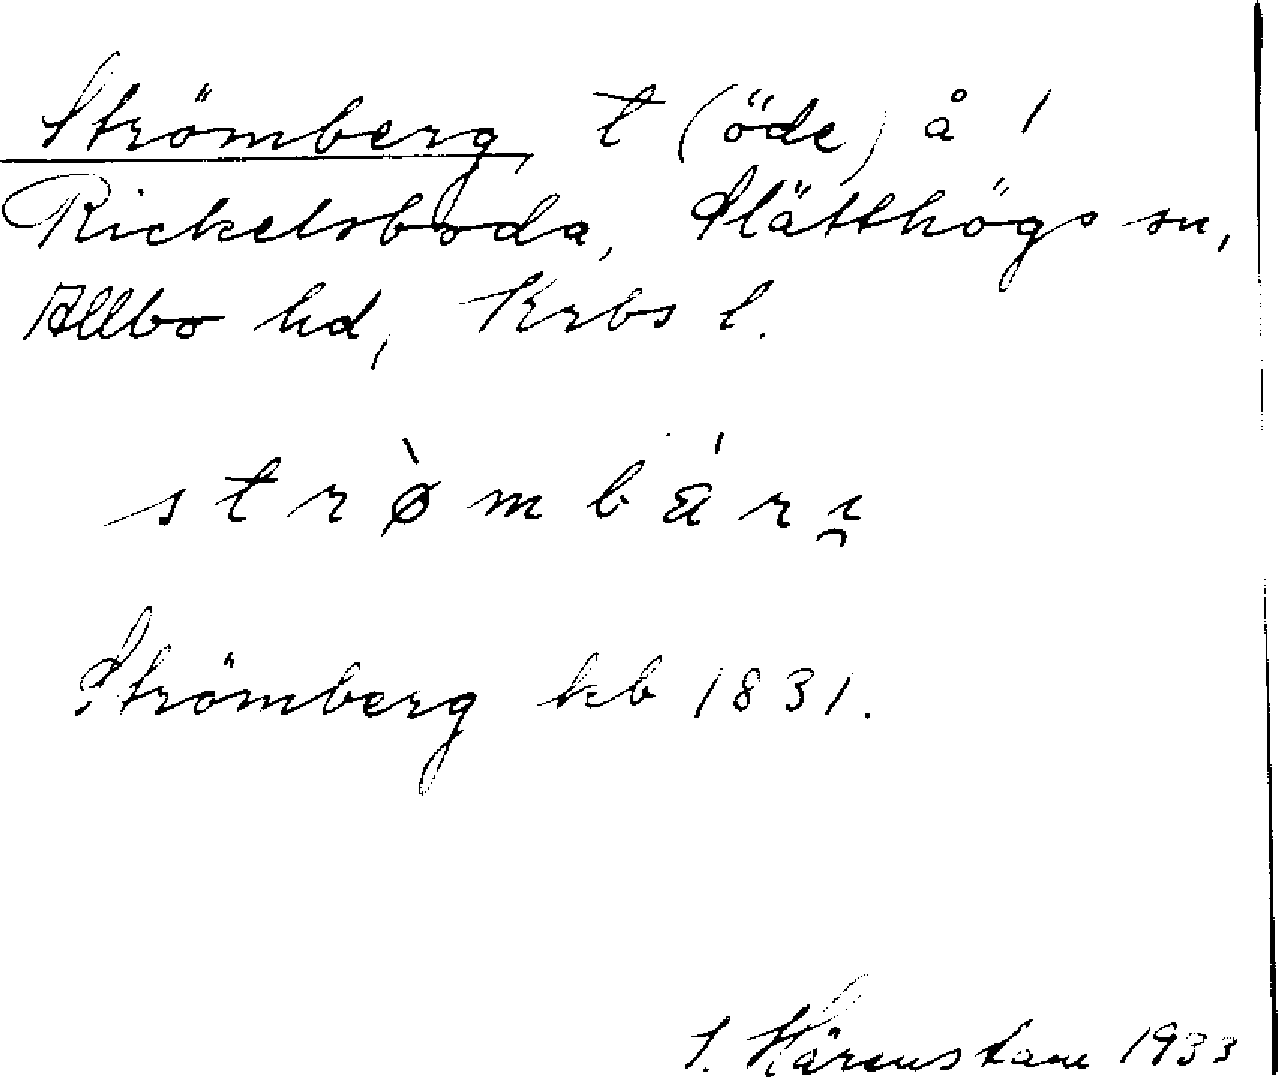 Strömberg t (öde) å 1
Rickelsboda, Slätthögs sn,
Allbo hd, Krbs l.
strø̀mbárı̯
Strömberg kb 1831.
S. Härenstam 1933